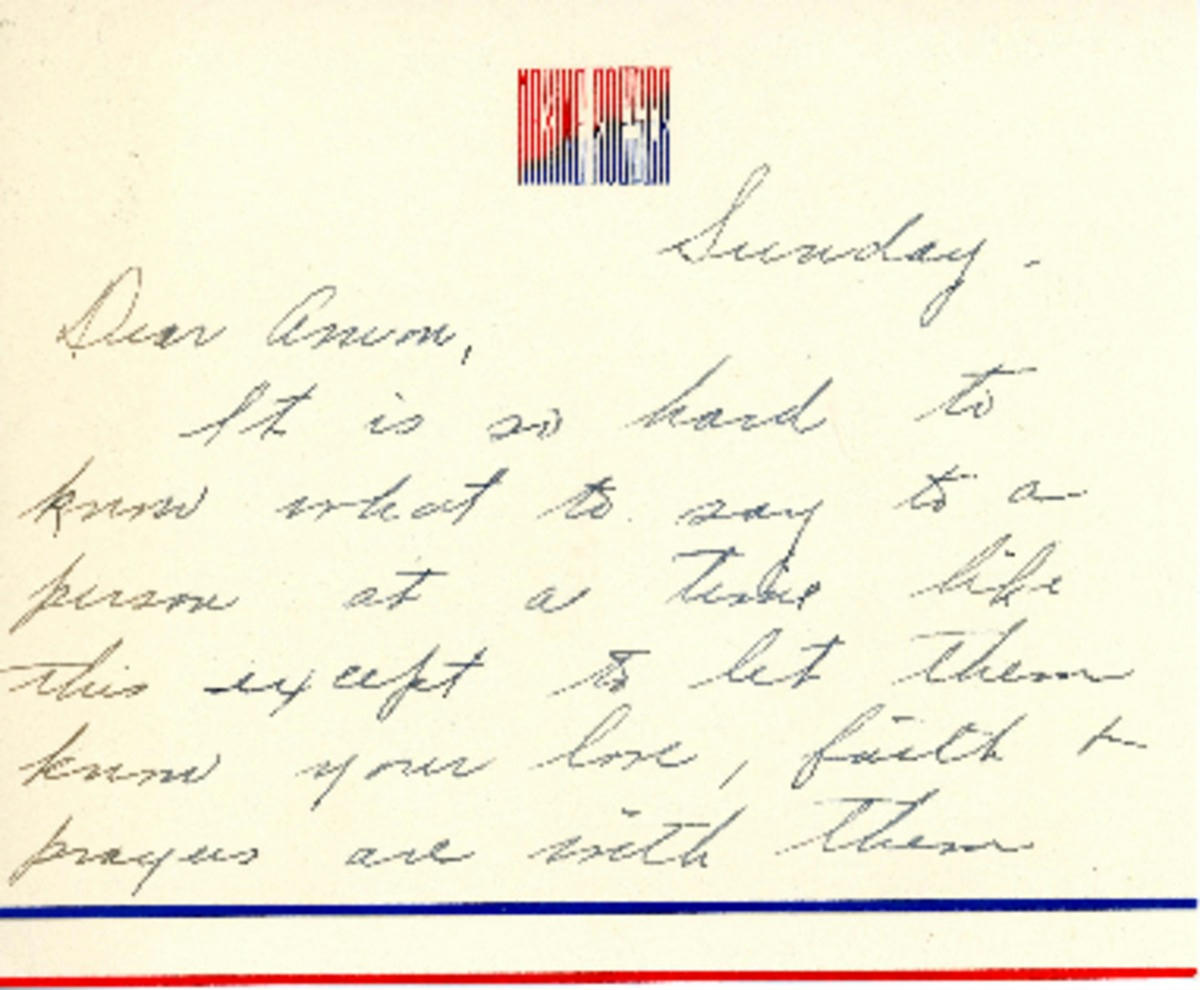 Sunday.
Dear
It is so hard to
know what to say to a
person at a time like
this except to let them
know your love, faith +
prayers are with them